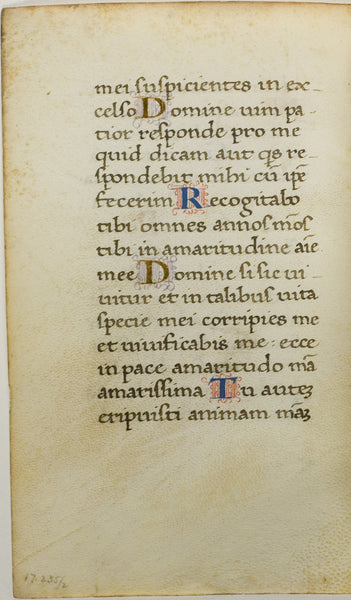 mei suspicientes in ex-
celso Domine uim pa-
tior responde pro me
quid dicam aut qs re-
spondebit mihi cū ip̄e
fecerim Recogitabo
tibi omnes annos m̄os
tibi in amaritudine aīe
mee Domine si sic ui-
uitur et in talibus uita
specie mei corripies me
et uiuificabis me : ecce
in pace amaritudo m̄a
amarissima Tu autez
eripuisti animam māz
17.235/2